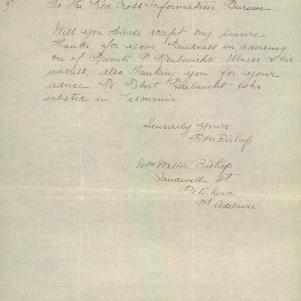 To the Red Cross Information Bureau
Will you please accept my sincere
thanks for your kindness in advising
me of Private P illness & his
address, also thanking you for your
advice Re Robert who
enlisted in Tasmania
Sincerely Yours
Bishop
Walter Bishop
St
Peterhead
Pt Adelaide